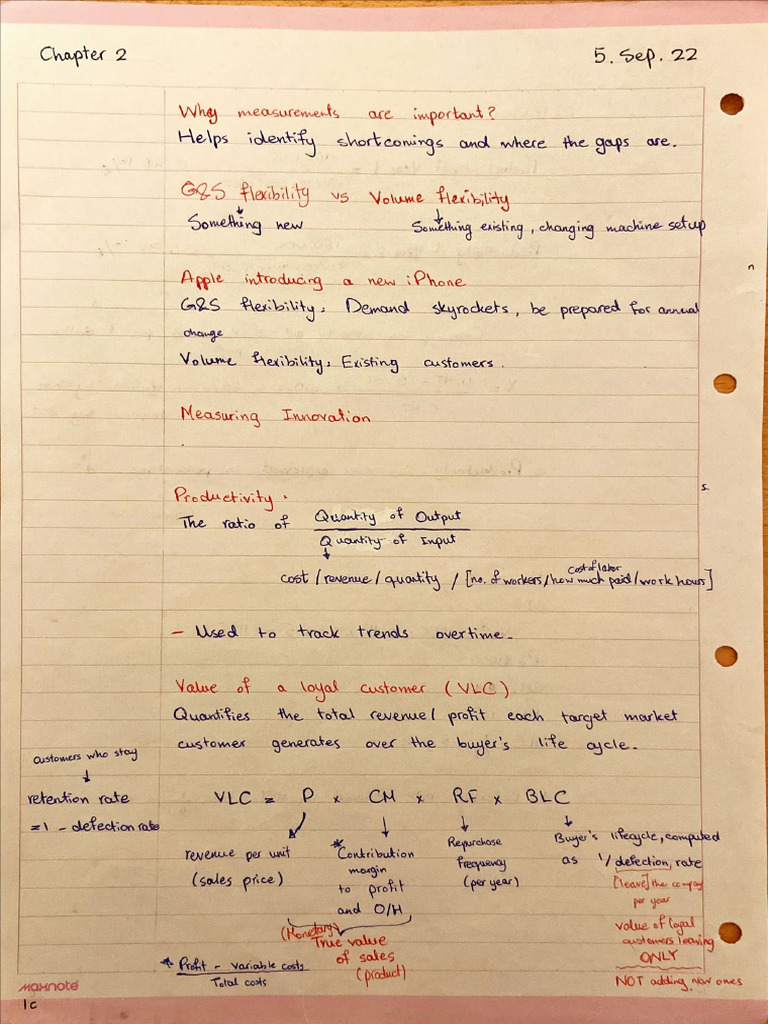 Chapter 2
5. Sep. 22
Why measurements are important?
Helps identify shortcomings and where the gaps are.
G&S flexibility vs Volume flexibility
Something new
Something existing, changing machine setup
Apple introducing a new iPhone
G&S flexibility: Demand skyrockets, be prepared for annual
change
Volume flexibility: Existing customers.
Measuring Innovation
Productivity:
The ratio of Quantity of Output
Quantity of Input
cost of labor
cost / revenue / quantity / [no. of workers / how much paid / work hours]
- Used to track trends overtime.
Value of a loyal customer (VLC)
Quantifies the total revenue / profit each target market
customer generates over the buyer's life cycle.
customers who stay
retention rate
= 1 - defection rate
VLC = P x CM x RF x BLC
revenue per unit
(sales price)
* Contribution
margin
to profit
and O/H
Repurchase
frequency
(per year)
Buyer's lifecycle, computed
as 1/defection rate
[leave] the company
per year
(Monetary)
True value
of sales
(product)
value of loyal
customers leaving
ONLY
NOT adding new ones
* Profit - variable costs
Total costs
MAXNOTE
1c
n
s.